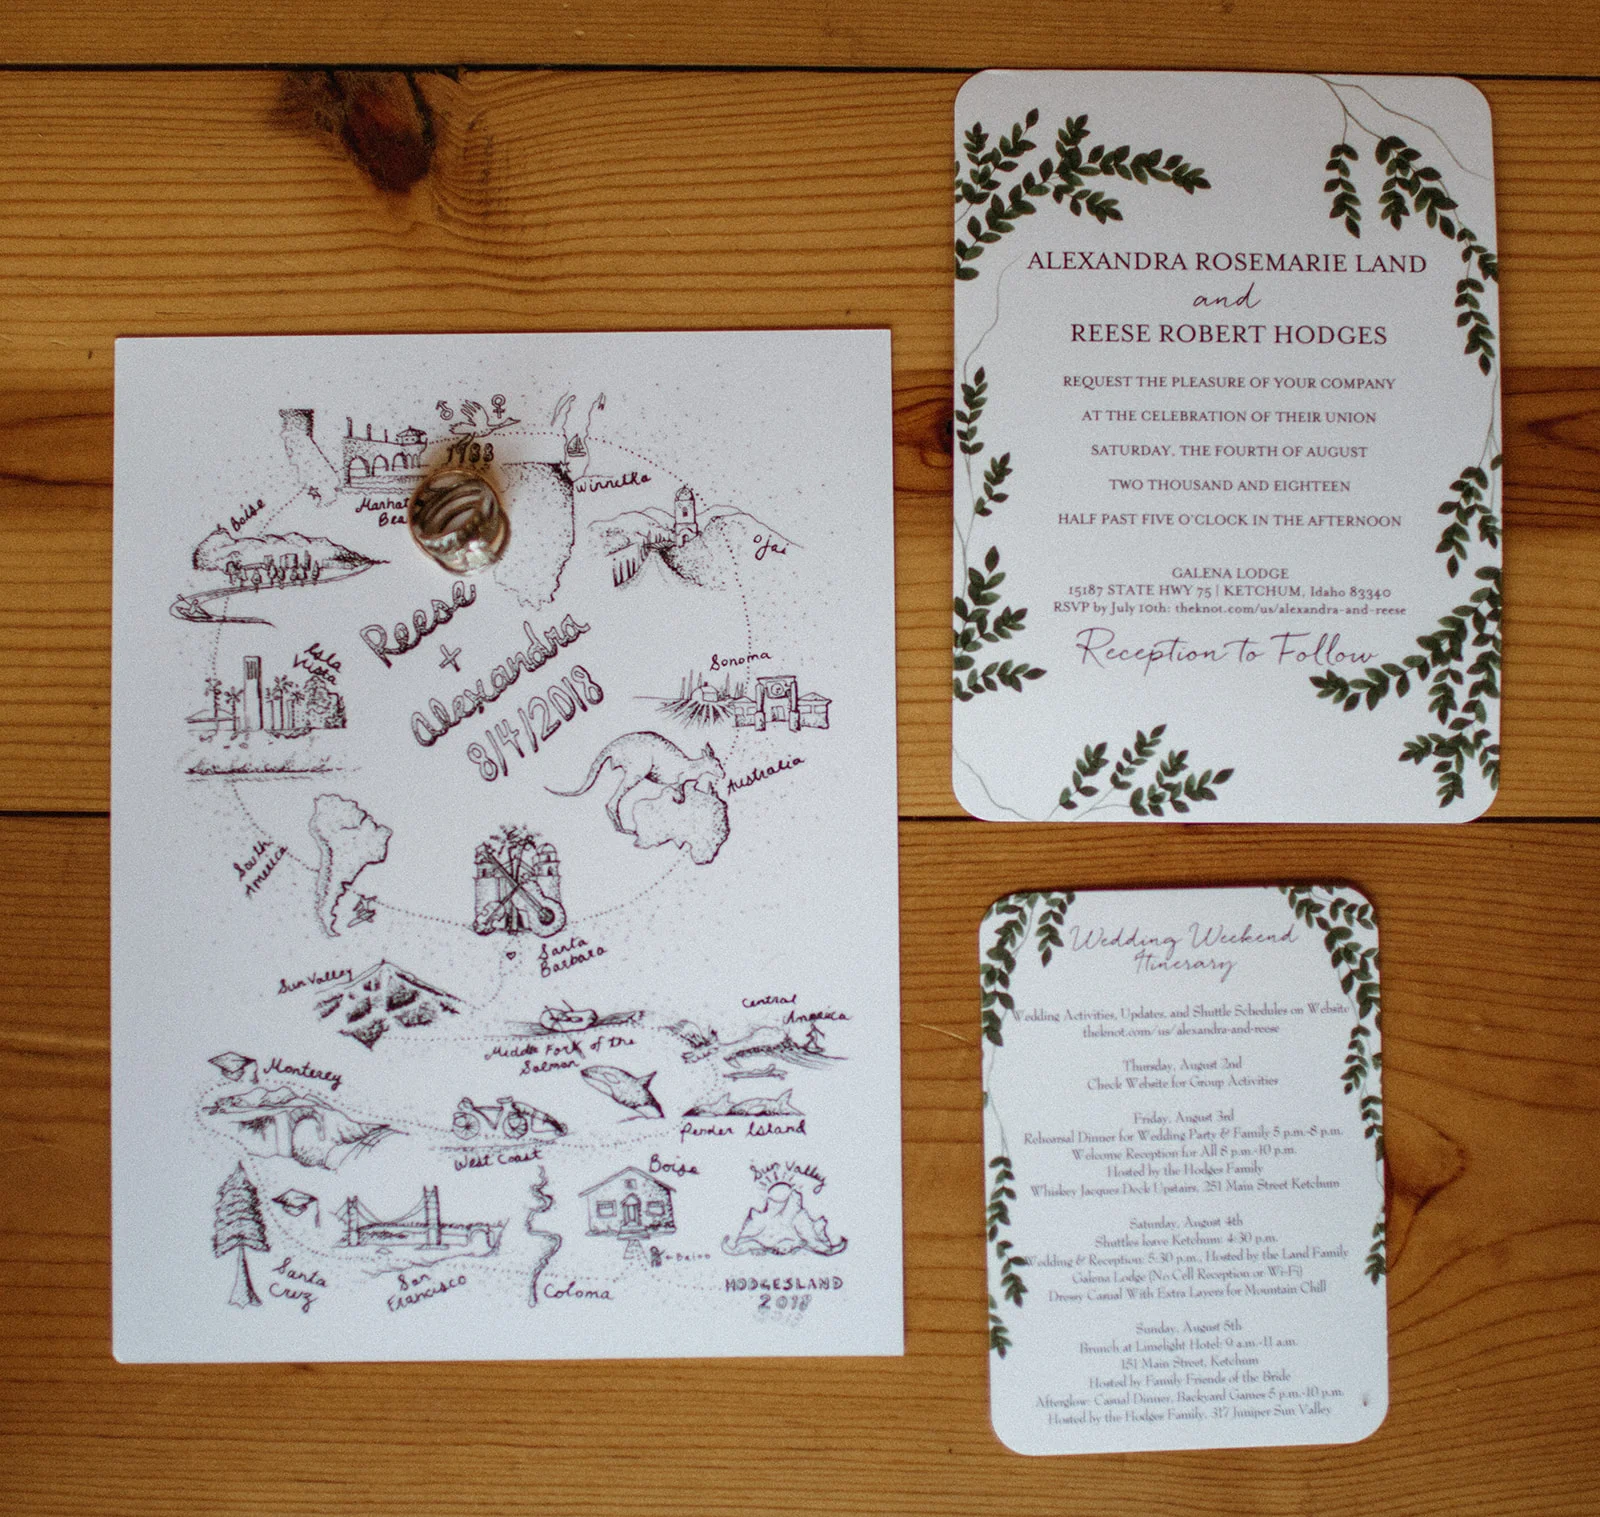 1988
Manhat
Bea
Winnetka
Boise
Ojai
Reese
+
Alexandra
8/4/2018
Isla
Vista
Sonoma
Australia
South
America
Santa
Barbara
Sun Valley
Middle Fork of the
Salmon
Central
America
Monterey
West Coast
Pender Island
Boise
Sun Valley
Santa
Cruz
San
Francisco
Coloma
HODGESLAND
2018
ALEXANDRA ROSEMARIE LAND
and
REESE ROBERT HODGES
REQUEST THE PLEASURE OF YOUR COMPANY
AT THE CELEBRATION OF THEIR UNION
SATURDAY, THE FOURTH OF AUGUST
TWO THOUSAND AND EIGHTEEN
HALF PAST FIVE O'CLOCK IN THE AFTERNOON
GALENA LODGE
15187 STATE HWY 75 | KETCHUM, Idaho 83340
RSVP by July 10th: theknot.com/us/alexandra-and-reese
Reception to Follow
Wedding Weekend
Itinerary
Wedding Activities, Updates, and Shuttle Schedules on Website
theknot.com/us/alexandra-and-reese
Thursday, August 2nd
Check Website for Group Activities
Friday, August 3rd
Rehearsal Dinner for Wedding Party & Family 5 p.m.-8 p.m.
Welcome Reception for All 8 p.m.-10 p.m.
Hosted by the Hodges Family
Whiskey Jacques Deck Upstairs, 251 Main Street Ketchum
Saturday, August 4th
Shuttles leave Ketchum: 4:30 p.m.
Wedding & Reception: 5:30 p.m., Hosted by the Land Family
Galena Lodge (No Cell Reception or Wi-Fi)
Dressy Casual With Extra Layers for Mountain Chill
Sunday, August 5th
Brunch at Limelight Hotel: 9 a.m.-11 a.m.
151 Main Street, Ketchum
Hosted by Family Friends of the Bride
Afterglow: Casual Dinner, Backyard Games 5 p.m.-10 p.m.
Hosted by the Hodges Family, 317 Juniper Sun Valley